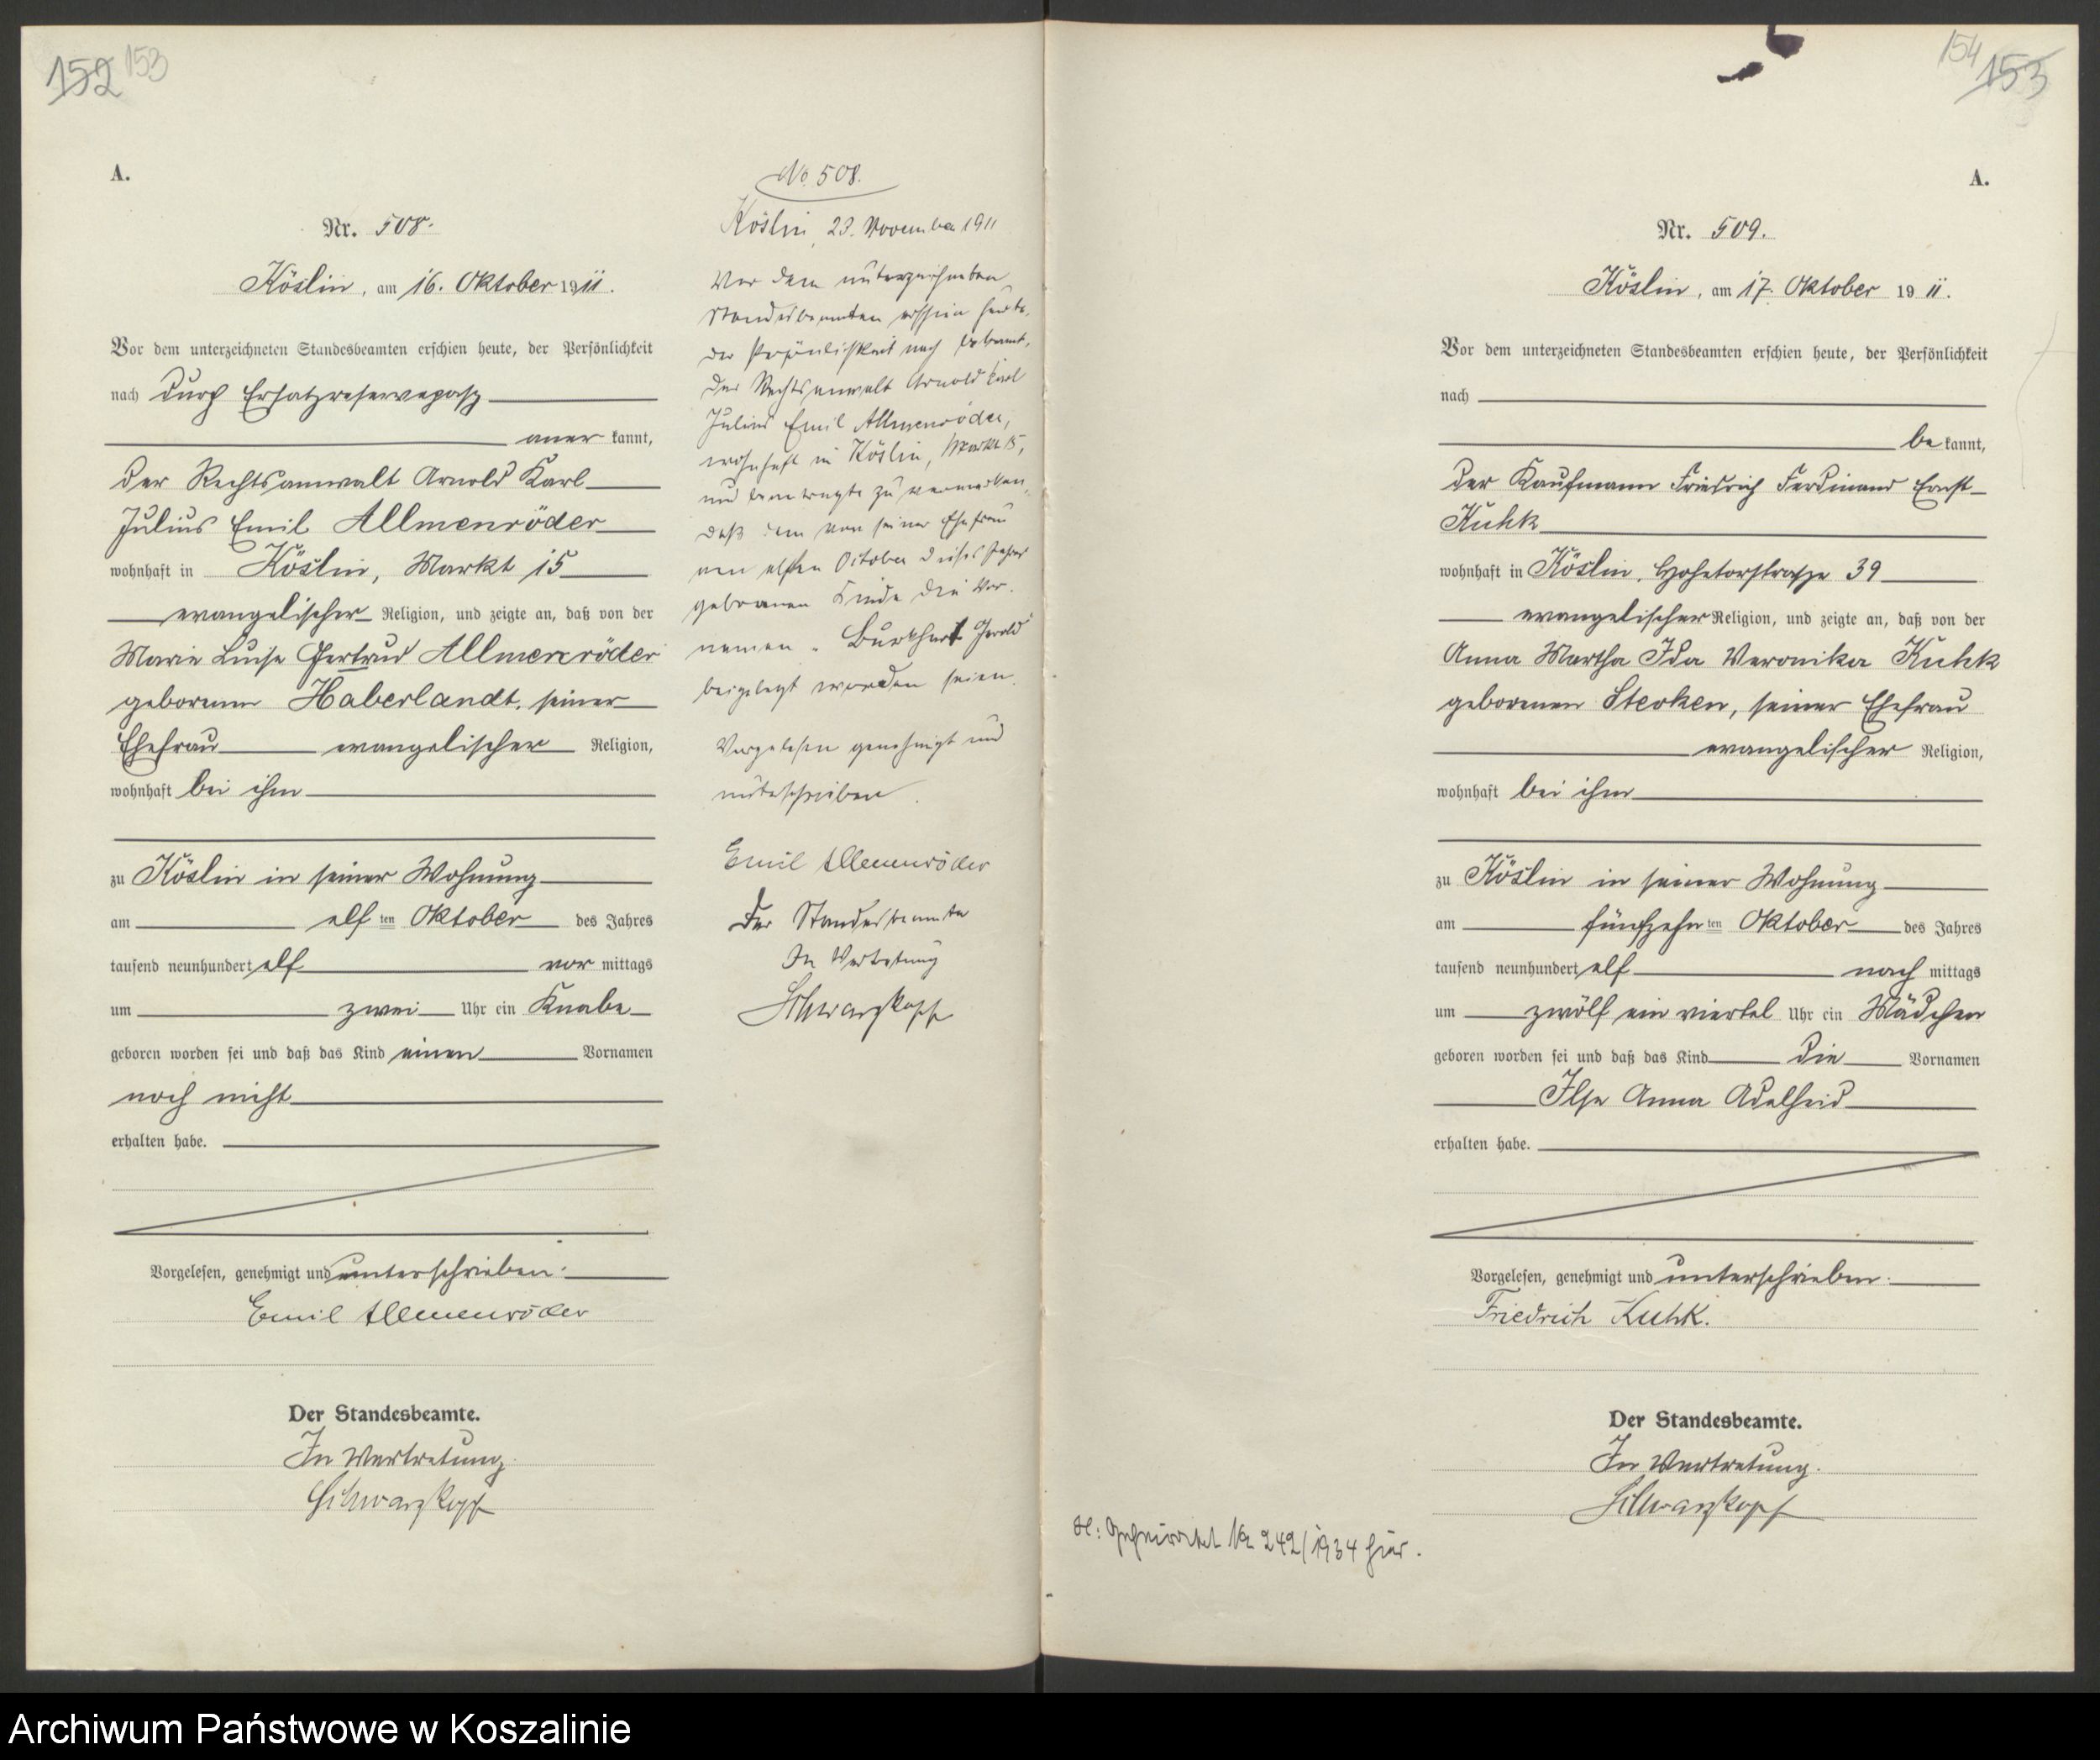 152 153
A.
Nr. 508.
Köslin, am 16. Oktober 1911.
Vor dem unterzeichneten Standesbeamten erschien heute, der Persönlichkeit
nach durch Ersatzreservepaß
anerkannt,
der Rechtsanwalt Arnold Karl
Julius Emil Allmenröder
wohnhaft in Köslin, Markt 15
evangelischer Religion, und zeigte an, daß von der
Marie Luise Gertrud Allmenröder
geborenen Haberlandt, seiner
Ehefrau evangelischer Religion,
wohnhaft bei ihm
zu Köslin in seiner Wohnung
am elften Oktober des Jahres
tausend neunhundert elf vormittags
um zwei Uhr ein Knabe
geboren worden sei und daß das Kind einen Vornamen
noch nicht
erhalten habe.
Vorgelesen, genehmigt und unterschrieben.
Emil Allmenröder
Der Standesbeamte.
In Vertretung.
Schwarzkopf
No. 508.
Köslin, 23. November 1911
Vor dem unterzeichneten
Standesbeamten erschien heute,
der Persönlichkeit nach bekannt,
der Rechtsanwalt Arnold Karl
Julius Emil Allmenröder,
wohnhaft in Köslin, Markt 15,
und beantragte zu vermerken,
daß dem von seiner Ehefrau
am elften October dieses Jahres
geborenen Kinde die Vor-
namen „Burkhart Gerold“
beigelegt worden seien.
Vorgelesen genehmigt und
unterschrieben.
Emil Allmenröder
Der Standesbeamte
In Vertretung
Schwarzkopf
154 153
A.
Nr. 509.
Köslin, am 17. Oktober 1911.
Vor dem unterzeichneten Standesbeamten erschien heute, der Persönlichkeit
nach
bekannt,
der Kaufmann Friedrich Ferdinand Ernst
Kuhk
wohnhaft in Köslin, Hohetorstraße 39
evangelischer Religion, und zeigte an, daß von der
Anna Martha Ida Veronika Kuhk
geborenen Sterken, seiner Ehefrau
evangelischer Religion,
wohnhaft bei ihm
zu Köslin in seiner Wohnung
am fünfzehnten Oktober des Jahres
tausend neunhundert elf nachmittags
um zwölf ein viertel Uhr ein Mädchen
geboren worden sei und daß das Kind die Vornamen
Ilse Anna Adelheid
erhalten habe.
Vorgelesen, genehmigt und unterschrieben.
Friedrich Kuhk.
Der Standesbeamte.
In Vertretung.
Schwarzkopf
Geheiratet Nr 242/1934 hier.
Archiwum Państwowe w Koszalinie